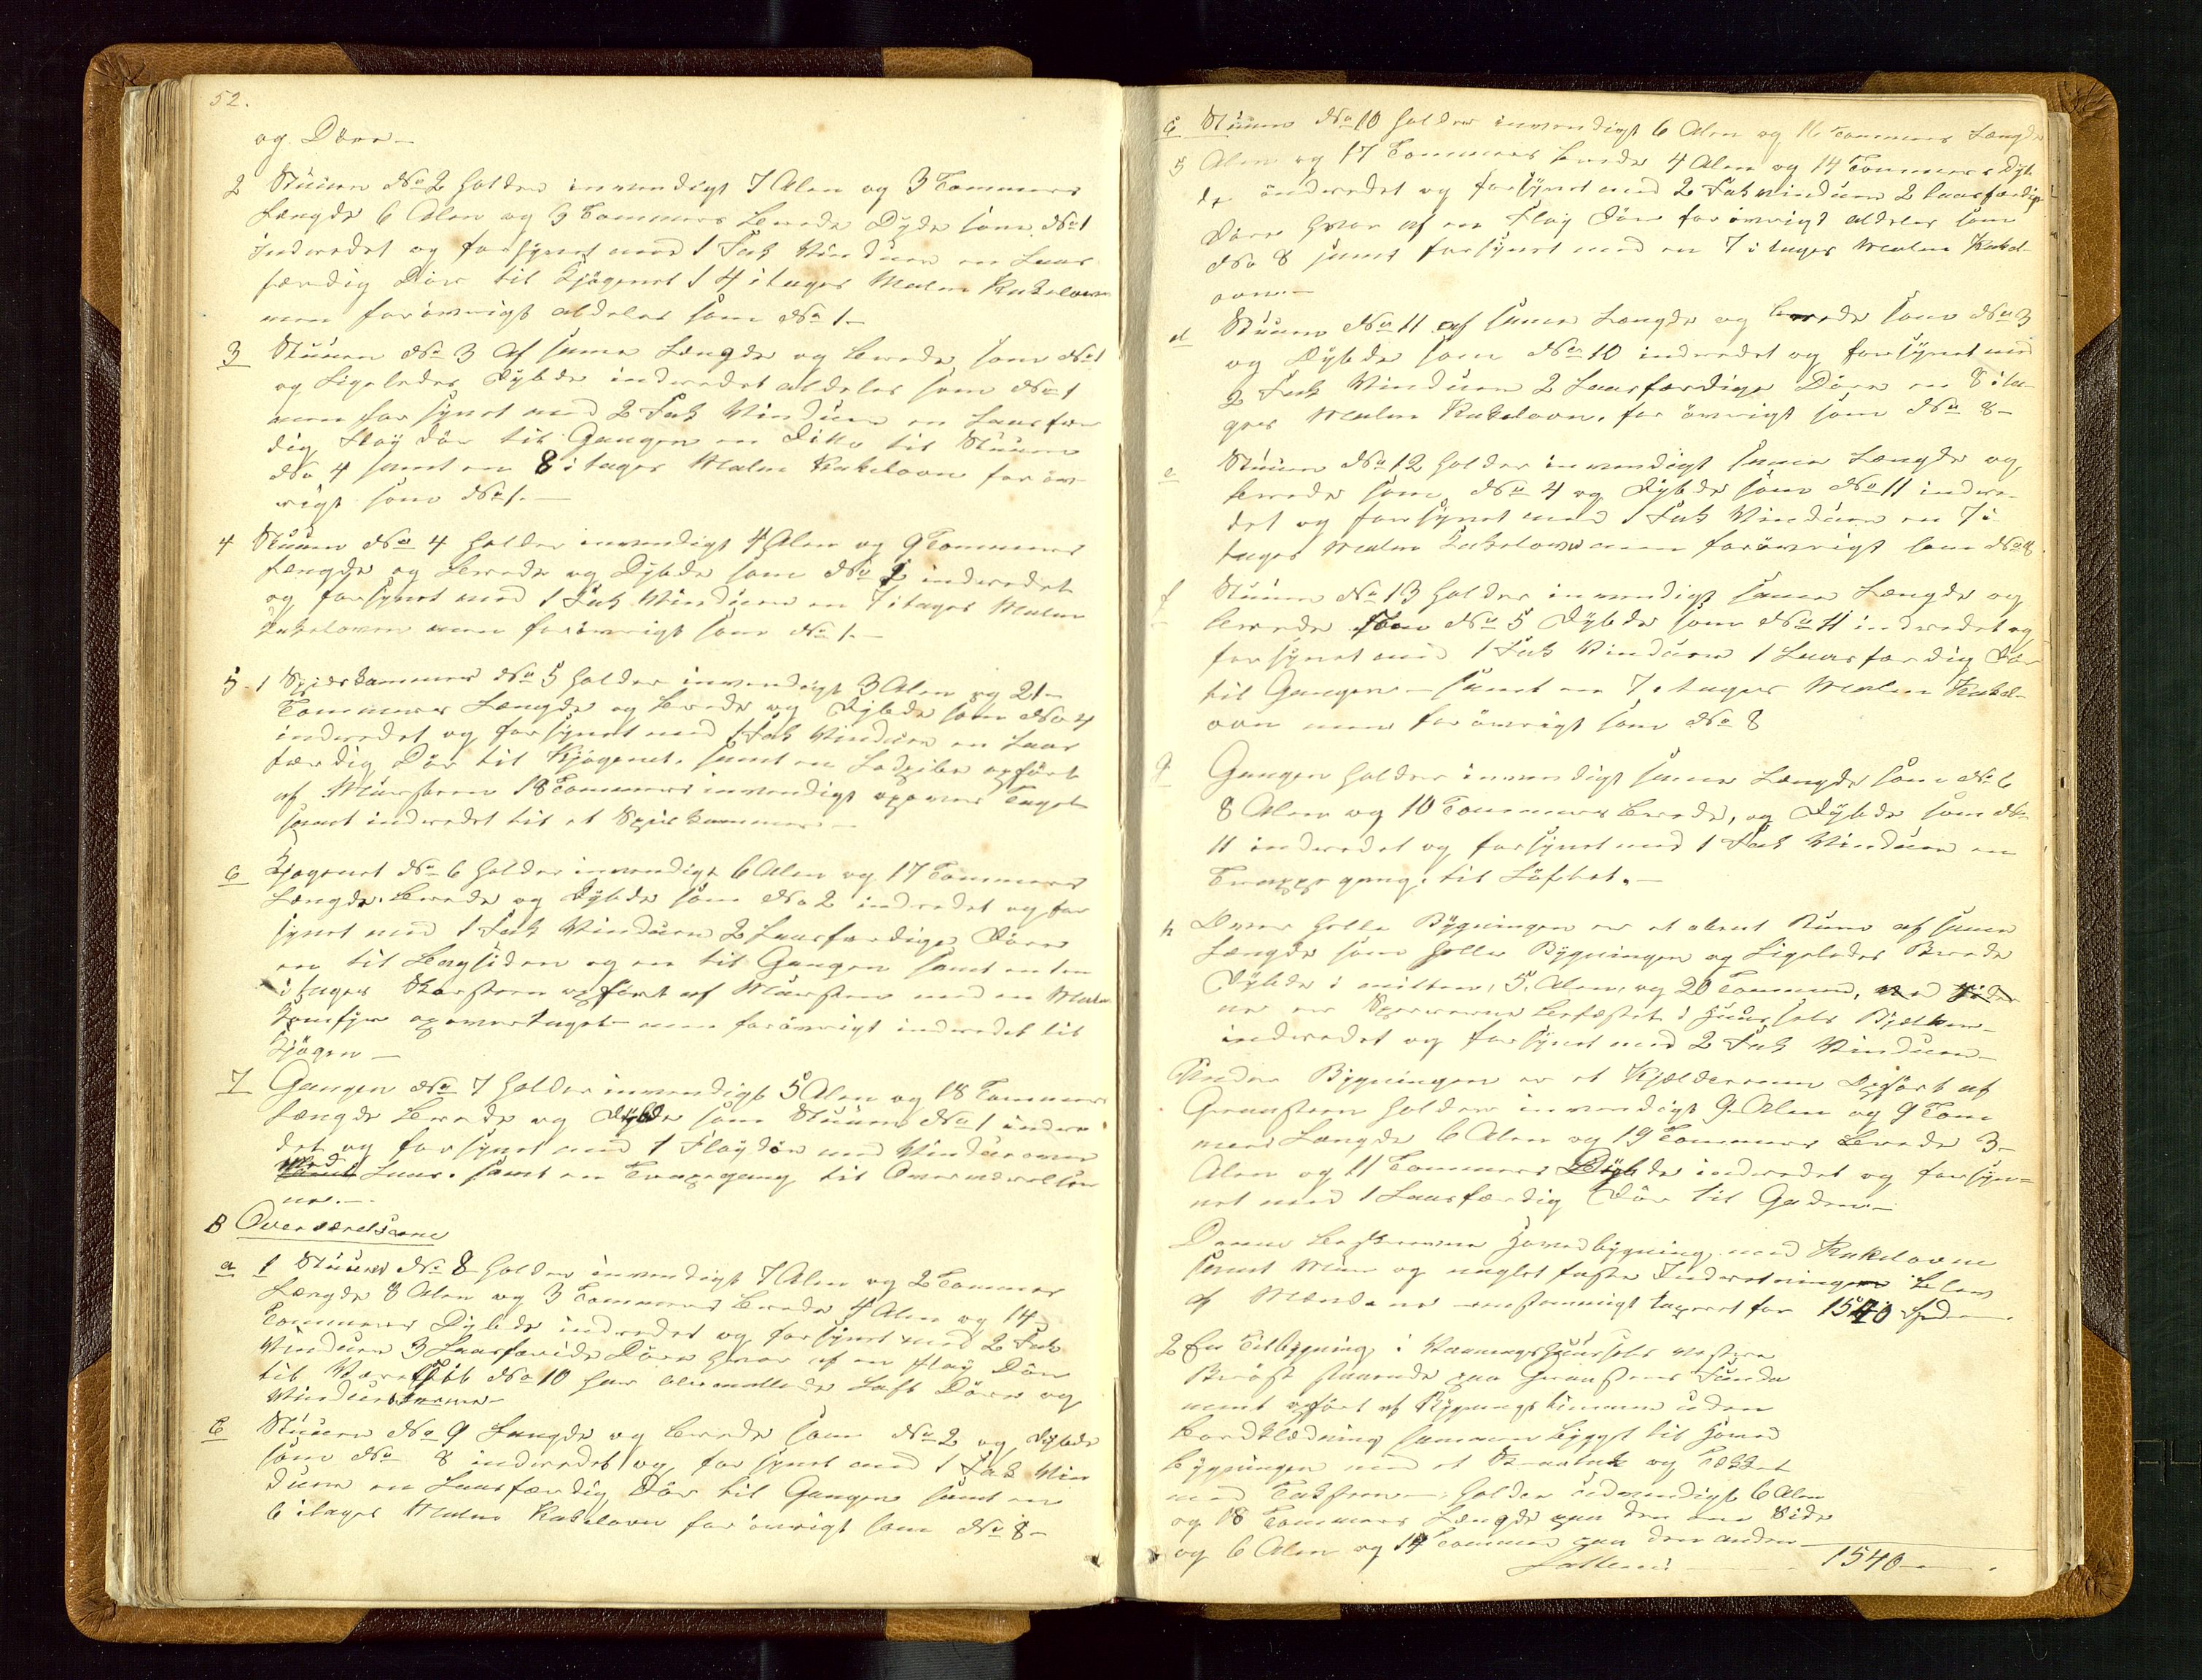 52.
og Döre —
2 Stuen No 2 holder invendigt 7 Alen og 3 Tommers
Længde 6 Alen og 9 Tommers Brede Dyde som No 1
indredet og forsynet med 1 Fak Vinduer en Laas
færdig Dör til Kjögenet 1 4 i tages Malm Kakelovn
men forövrigt aldeles som No 1 —
3 Stuen No 3 af same Længde og Brede som No 1
og Ligeledes Dybde indredet aldeles som No 1
men forsynet med 2 Fak Vinduer en Laasfær
dig Flöÿ dör til Gangen en Ditto til Stuen
No 4 samt en 8 i tages Malm Kakelovn foröv
rigt som No 1. —
4 Stuen No 4 holder invendigt 4 Alen og 9 Tommers
Længde og Brede og Dybde som No 2 indredet
og forsynet med 1 Fak Vinduer en 7 i tages Malm
Kakelovn men forövrigt som No 1 —
5 - 1 Spiskammer No 5 holder invendigt 3 Alen og 21 —
Tommers Længde og Brede og Dybde som No 4
indredet og forsynet med 1 Fak Vinduer en Laas
færdig Dör til Kjögenet. samt en Lodpibe opfört
af Mursteen 18 Tommers invendigt op over Taget
samt indredet til et Spiskammer —
6 Kjögenet No 6 holder invendigt 6 Alen og 17 Tommers
Længde. Brede og Dybde som No 2 indredet og for
synet med 1 Fak Vinduer 2 Laasfærdige Döre
en til Bagsiden og en til Gangen samt en
i tages Skorsteen opfört af Mursteen med en Malm
Komfyr op over taget men forövrigt indredet til
Kjögen —
7 Gangen No 7 holder invendigt 5 Alen og 18 Tommers
Længde Brede og Dybde som Stuen No 1 indre
det og forsynet med 1 Flöÿdör med Vinduer over
med Laas. samt en Trapegang til Overværelser
ne. —
B Overværelserne
a 1 Stuen No 8 holder invendigt 7 Alen og 2 Tommer
Længde 8 Alen og 3 Tommers Brede 4 Alen og 14
Tommers Dybde indredet og forsynet med 2 Fak
Vinduer 3 Laasfærdide Döre hvor af en Flöÿ Dör
til No 10 har Loft Döre og
Vinduer —
b Stuen No 9 Længde og Brede som No 2 og Dybde
som No 8 indredet og forsynet med 1 Fak Vin
duer en Laasfærdig Dör til Gangen samt en
6 i tages Malm Kakelovn forövrigt som No 8 —
c Stuen No 10 holder invendigt 6 Alen og 16 Tommers Længde
5 Alen og 17 Tommers Brede 4 Alen og 14 Tommers Dyb
de indredet og forsynet med 2 Fak vinduer 2 Laasfærdige
Döre hvor af en Flöÿ Dör forövrigt aldeles som
No 8 samt forsynet med en 7 i tages Malm Kakel
ovn. —
d Stuen No 11 af same Længde og Brede som No 3
og Dybde som No 10 indredet og forsynet med
2 Fak Vinduer 2 Laasfærdige Döre en 8 i ta
ges Malm Kakelovn. for övrigt som No 8 —
e Stuen No 12 holder invendigt same Længde og
Brede som No 4 og Dybde som No 11 indre
det og forsynet med 1 Fak Vinduer en 7 i
tages Malm Kakelovn men forövrigt som No 8.
f Stuen No 13 holder invendigt same Længde og
Brede som No 5 Dybde som No 11 indredet og
forsynet med 1 Fak Vinduer 1 Laasfærdig Dör
til Gangen — samt en 7 i tages Malm Kakel
ovn men forövrigt som No 8
g Gangen holder invendigt same Længde som No 6
8 Alen og 10 Tommers Brede, og Dybde som No
11 indredet og forsynet med 1 Fak Vinduer en
Trappegang til Löftet. —
h Över hele Bygningen er et abent Rum af same
Længde som hele Bygningen og Ligeledes Brede
Dybde i miten, 5. Alen, og 20 Tommer,
ne er Sperrerne befæstet i Huussets Bjelker —
indredet og forsynet med 2 Fak Vinduer —
Under Bygningen er et Kjælderrum Opfört af
Graasteen holder invendigt 9 Alen og 9 Tom
mers Længde 6 Alen og 19 Tommers Brede 3 —
Alen og 11 Tommers Dybde indredet og forsyn=
net med 1 Laasfærdig Dör til Gaden —
Denne beskrevne Hovedbygning med Kakelovne
samt Muur og naglet faste Indretninger blev
af Mændene eenstemmigt taxeret for 1540 Spd —
2 En Tilbygning i Vaaningshuusets vestre
Bröst staaende paa Graasteens Funda
ment opfört af Bygningstömmer uden
Bordklædning sammenbygget til Hoved
bygningen med et Skraatak og Tækket
med Taksteen — holder udvendigt 6 Alen
og 18 Tommers Længde paa den ene Side
og 6 Alen og 14 Tommer paa den anden
Latteris — — — 1540 —